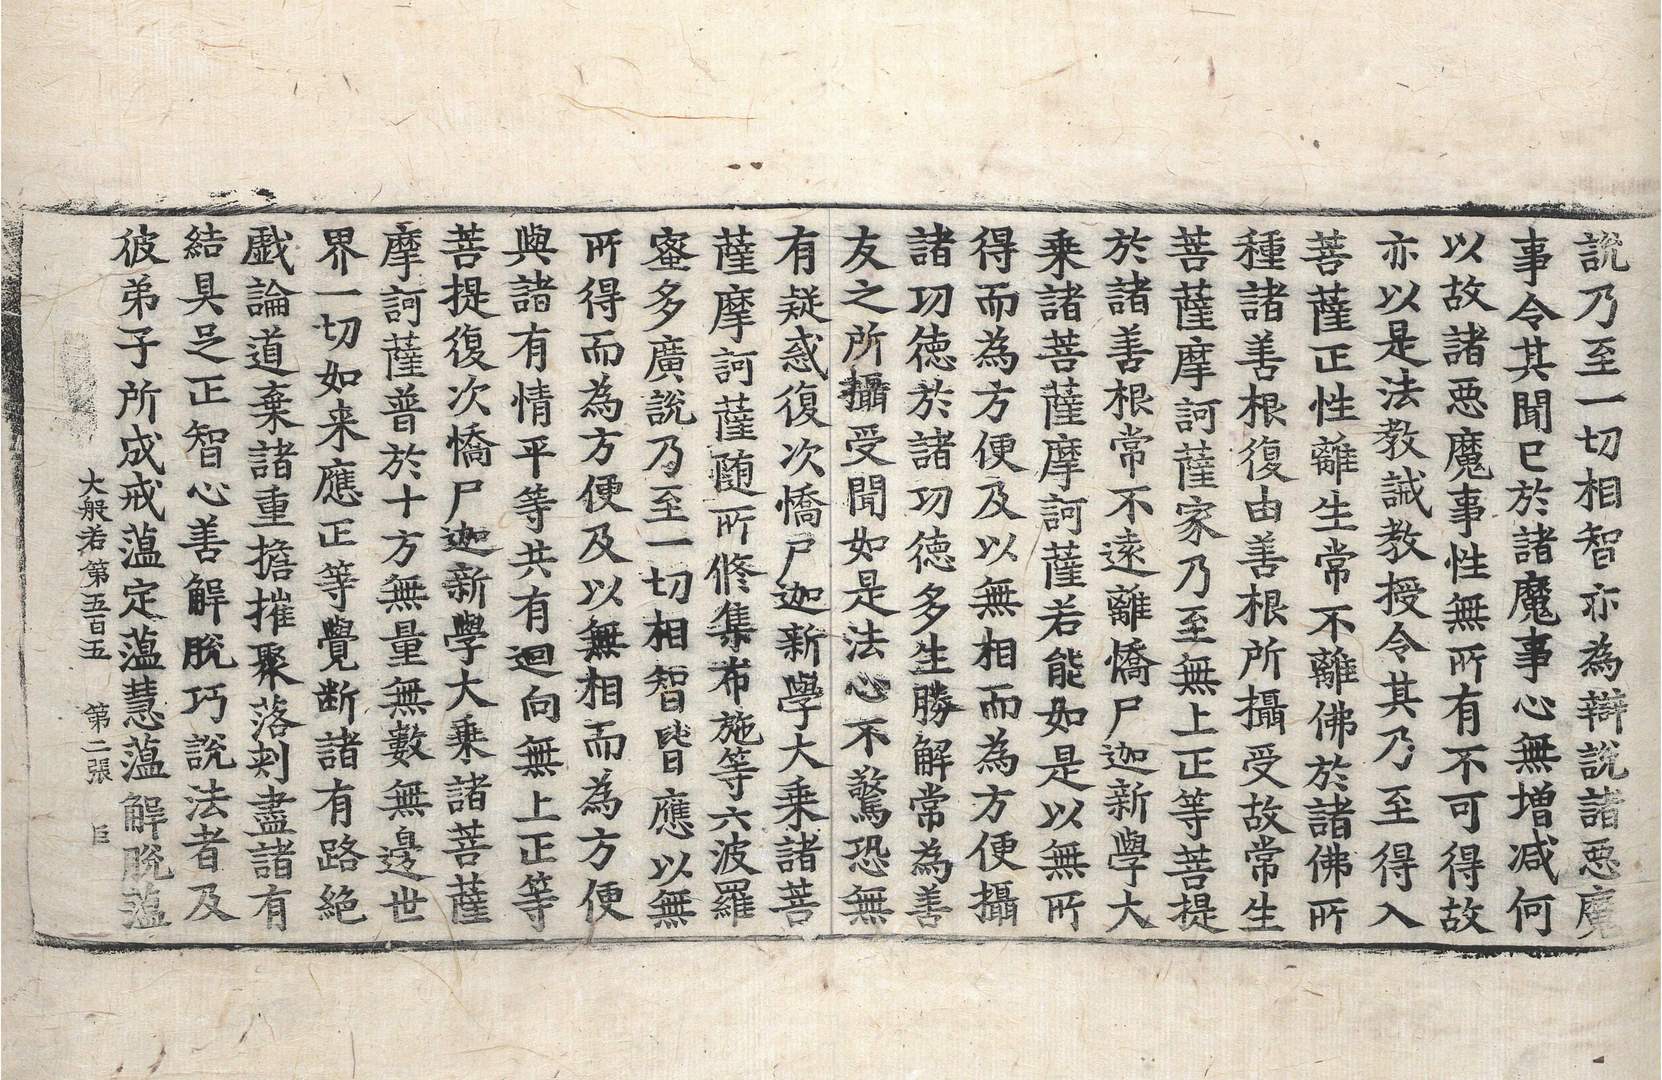 說乃至一切相智亦為辯說諸惡魔
事令其聞已於諸魔事心無增減何
以故諸惡魔事性無所有不可得故
亦以是法教誡教授令其乃至得入
菩薩正性離生常不離佛於諸佛所
種諸善根復由善根所攝受故常生
菩薩摩訶薩家乃至無上正等菩提
於諸善根常不遠離憍尸迦新學大
乘諸菩薩摩訶薩若能如是以無所
得而為方便及以無相而為方便攝
諸功德於諸功德多生勝解常為善
友之所攝受聞如是法心不驚恐無
有疑惑復次憍尸迦新學大乘諸菩
薩摩訶薩随所修集布施等六波羅
蜜多廣說乃至一切相智皆應以無
所得而為方便及以無相而為方便
與諸有情平等共有迴向無上正等
菩提復次憍尸迦新學大乘諸菩薩
摩訶薩普於十方無量無數無邊世
界一切如来應正等覺断諸有路絕
戲論道棄諸重擔摧聚落刺盡諸有
結具足正智心善解脫巧說法者及
彼弟子所成戒蕰定蕰慧蕰解脫蕰
大般若第五百五 第二張 巨